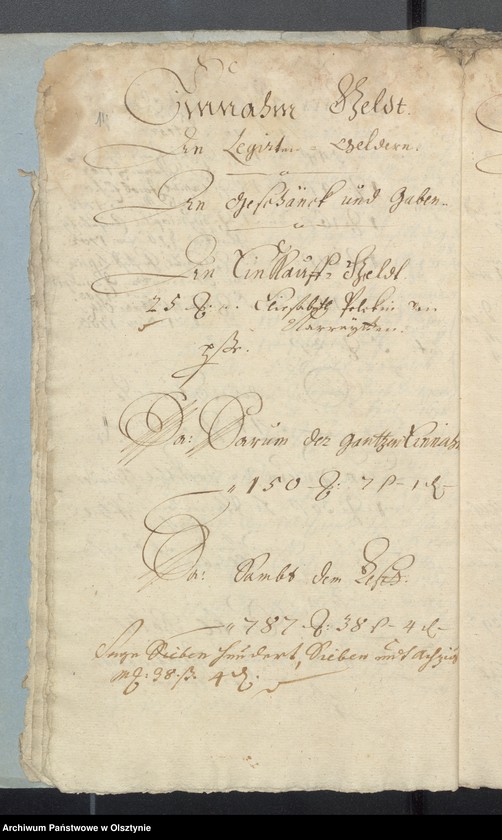 Einnahm Geldt.
An Legirten Geldern.
An Geschänck und Gaben
An Einkauff Geldt
25 Elisabeth
Sa: Sarum der gantzen Einnahm
150 7 1
Sa: Sambt dem Rest.
787 38 4
Sage Sieben hundert, Sieben und achzig
38 4
Archiwum Państwowe w Olsztynie